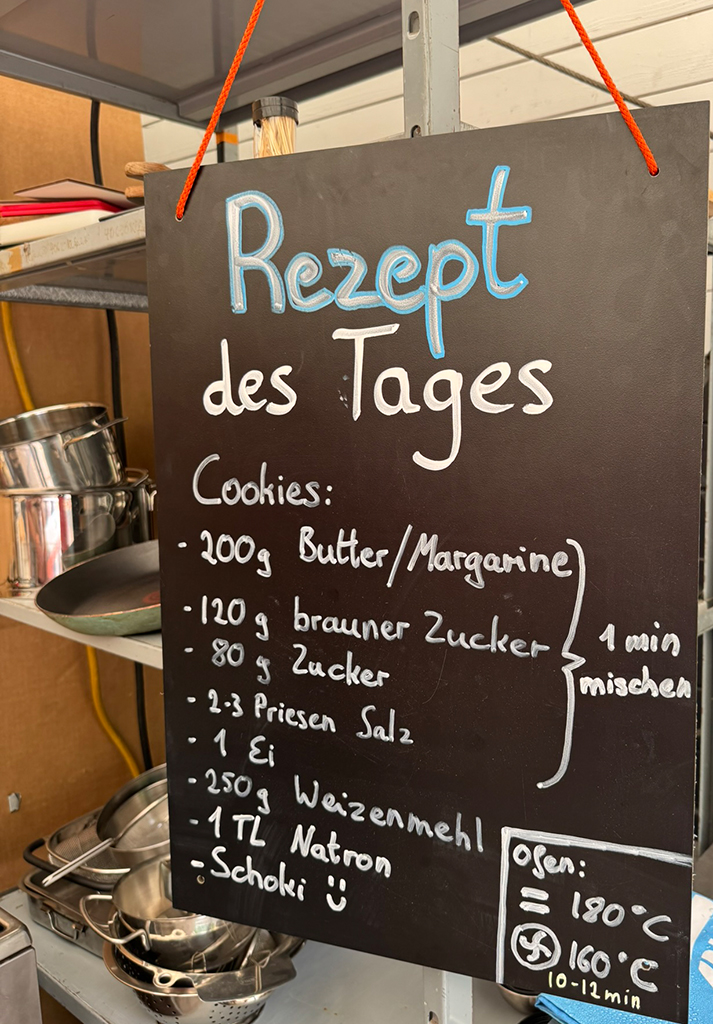 Rezept
des Tages
Cookies:
- 200g Butter/Margarine
- 120 g brauner Zucker
- 80 g Zucker
- 2-3 Priesen Salz
- 1 Ei
1 min
mischen
- 250g Weizenmehl
- 1 TL Natron
- Schoki :)
Ofen:
= 180°C
160°C
10-12 min